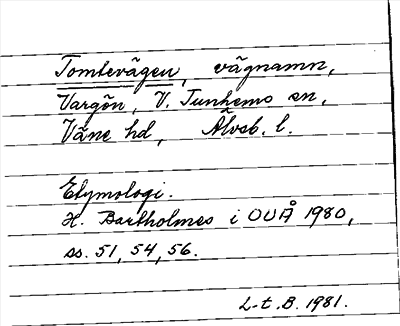 Tomtevägen, vägnamn,
Vargön, V. Tunhems sn,
Väne hd, Älvsb. l.
Etymologi.
H. Bartholmes i OUÅ 1980,
ss. 51, 54, 56.
L-t. B. 1981.